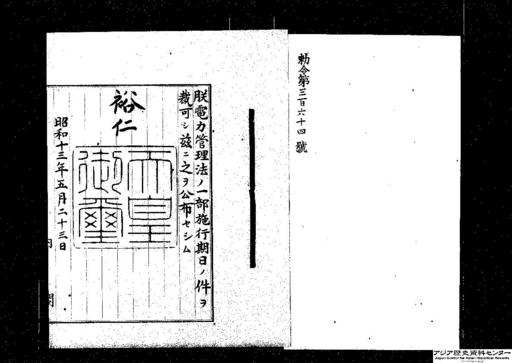 勅令第三百六十四號
朕電力管理法ノ一部施行期日ノ件ヲ
裁可シ茲ニ之ヲ公布セシム
裕仁
天皇
御璽
昭和十三年五月二十三日
アジア歴史資料センター
Japan Center for Asian Historical Records